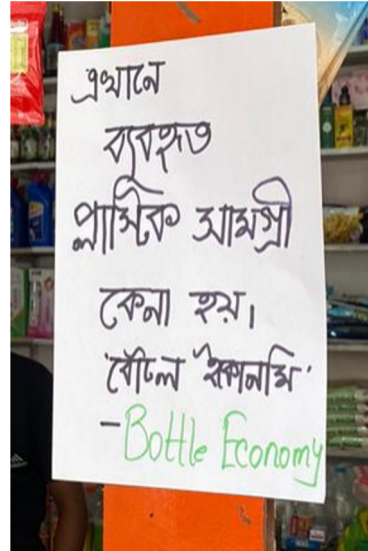 এখানে
ব্যবহৃত
প্লাস্টিক সামগ্রী
কেনা হয়।
'বোটল ইকোনমি'
-Bottle Economy